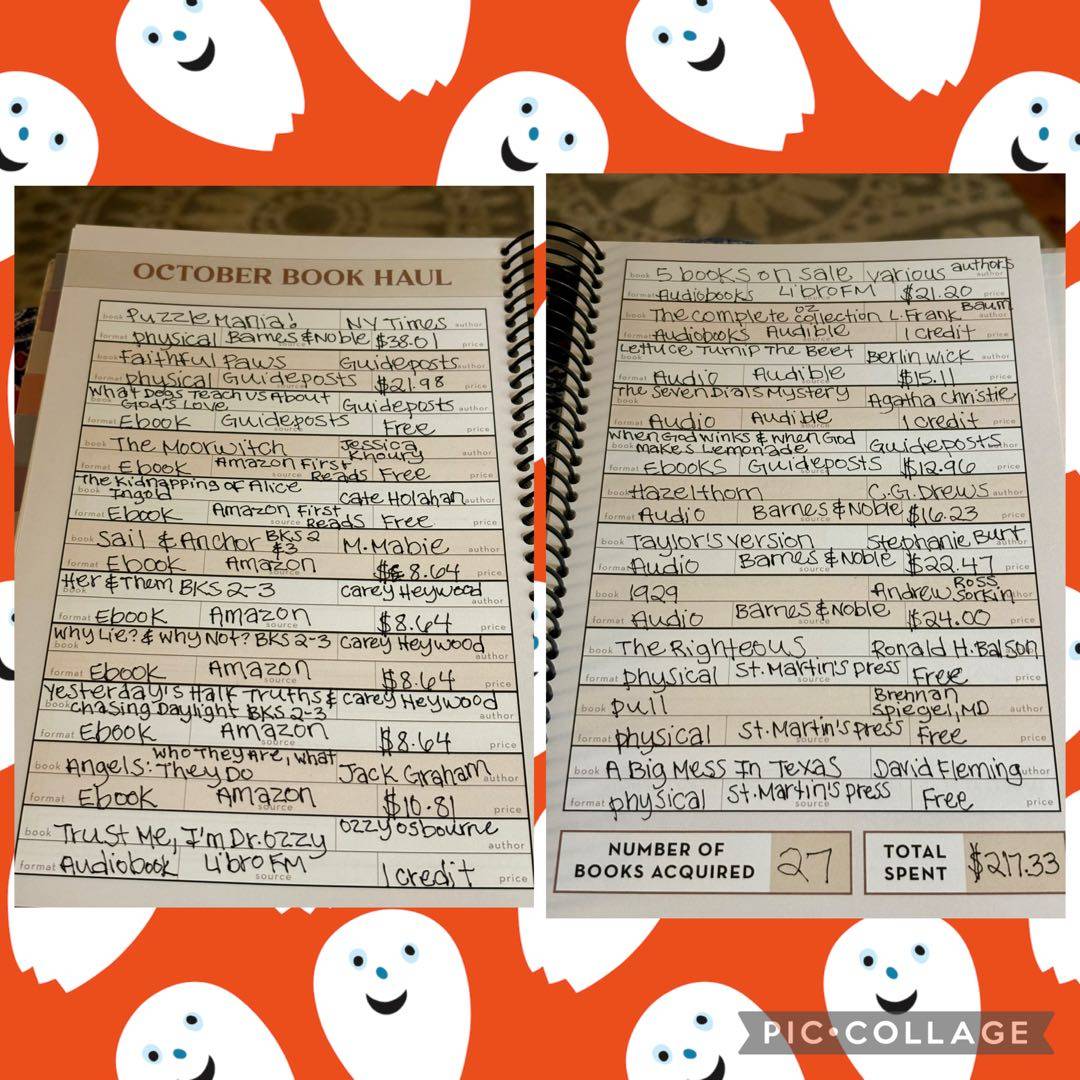 OCTOBER BOOK HAUL
book Puzzle Mania! NY Times author
format physical Barnes & Noble $38.01 price
book Faithful Paws Guideposts author
format physical Guideposts $21.98 price
What Dogs Teach Us About
book God's Love Guideposts author
format Ebook Guideposts source Free price
book The Moorwitch Jessica Khoury author
format Ebook Amazon First Reads source Free price
The Kidnapping of Alice
book Ingold Cate Holahan author
format Ebook Amazon First Reads source Free price
book Sail & Anchor BKS 2 & 3 M. Mabie author
format Ebook Amazon source $8.64 price
Her & Them BKS 2-3 Carey Heywood author
format Ebook Amazon source $8.64 price
Why Lie? & Why Not? BKS 2-3 Carey Heywood author
format Ebook Amazon $8.64 price
Yesterday's Half Truths & Carey Heywood
book Chasing Daylight BKS 2-3 author
format Ebook Amazon source $8.64 price
Who They Are, What
book Angels: They Do Jack Graham author
format Ebook Amazon source $10.81 price
book Trust Me, I'm Dr. Ozzy Ozzy Osbourne author
format Audiobook Libro FM source 1 credit price
book 5 books on sale various authors author
format Audiobooks Libro FM $21.20 price
book The Complete Oz Collection L. Frank Baum
format Audiobooks Audible 1 credit
Lettuce Turnip The Beet Berlin Wick author
format Audio Audible $15.11 price
The Seven Dials Mystery Agatha Christie
format Audio Audible source 1 credit price
When God Winks & When God
book Makes Lemonade Guideposts author
format Ebooks Guideposts source $12.96 price
book Hazelthorn C.G. Drews author
format Audio Barnes & Noble source $16.23 price
book Taylor's Version Stephanie Burt author
format Audio Barnes & Noble source $22.47 price
book 1929 Andrew Ross Sorkin author
format Audio Barnes & Noble source $24.00 price
book The Righteous Ronald H. Balson
format physical St. Martin's press source Free price
book Pull Brennan Spiegel, MD author
format physical St. Martin's press source Free price
book A Big Mess In Texas David Fleming author
format physical St. Martin's press source Free price
NUMBER OF
BOOKS ACQUIRED 27
TOTAL
SPENT $217.33
PIC•COLLAGE